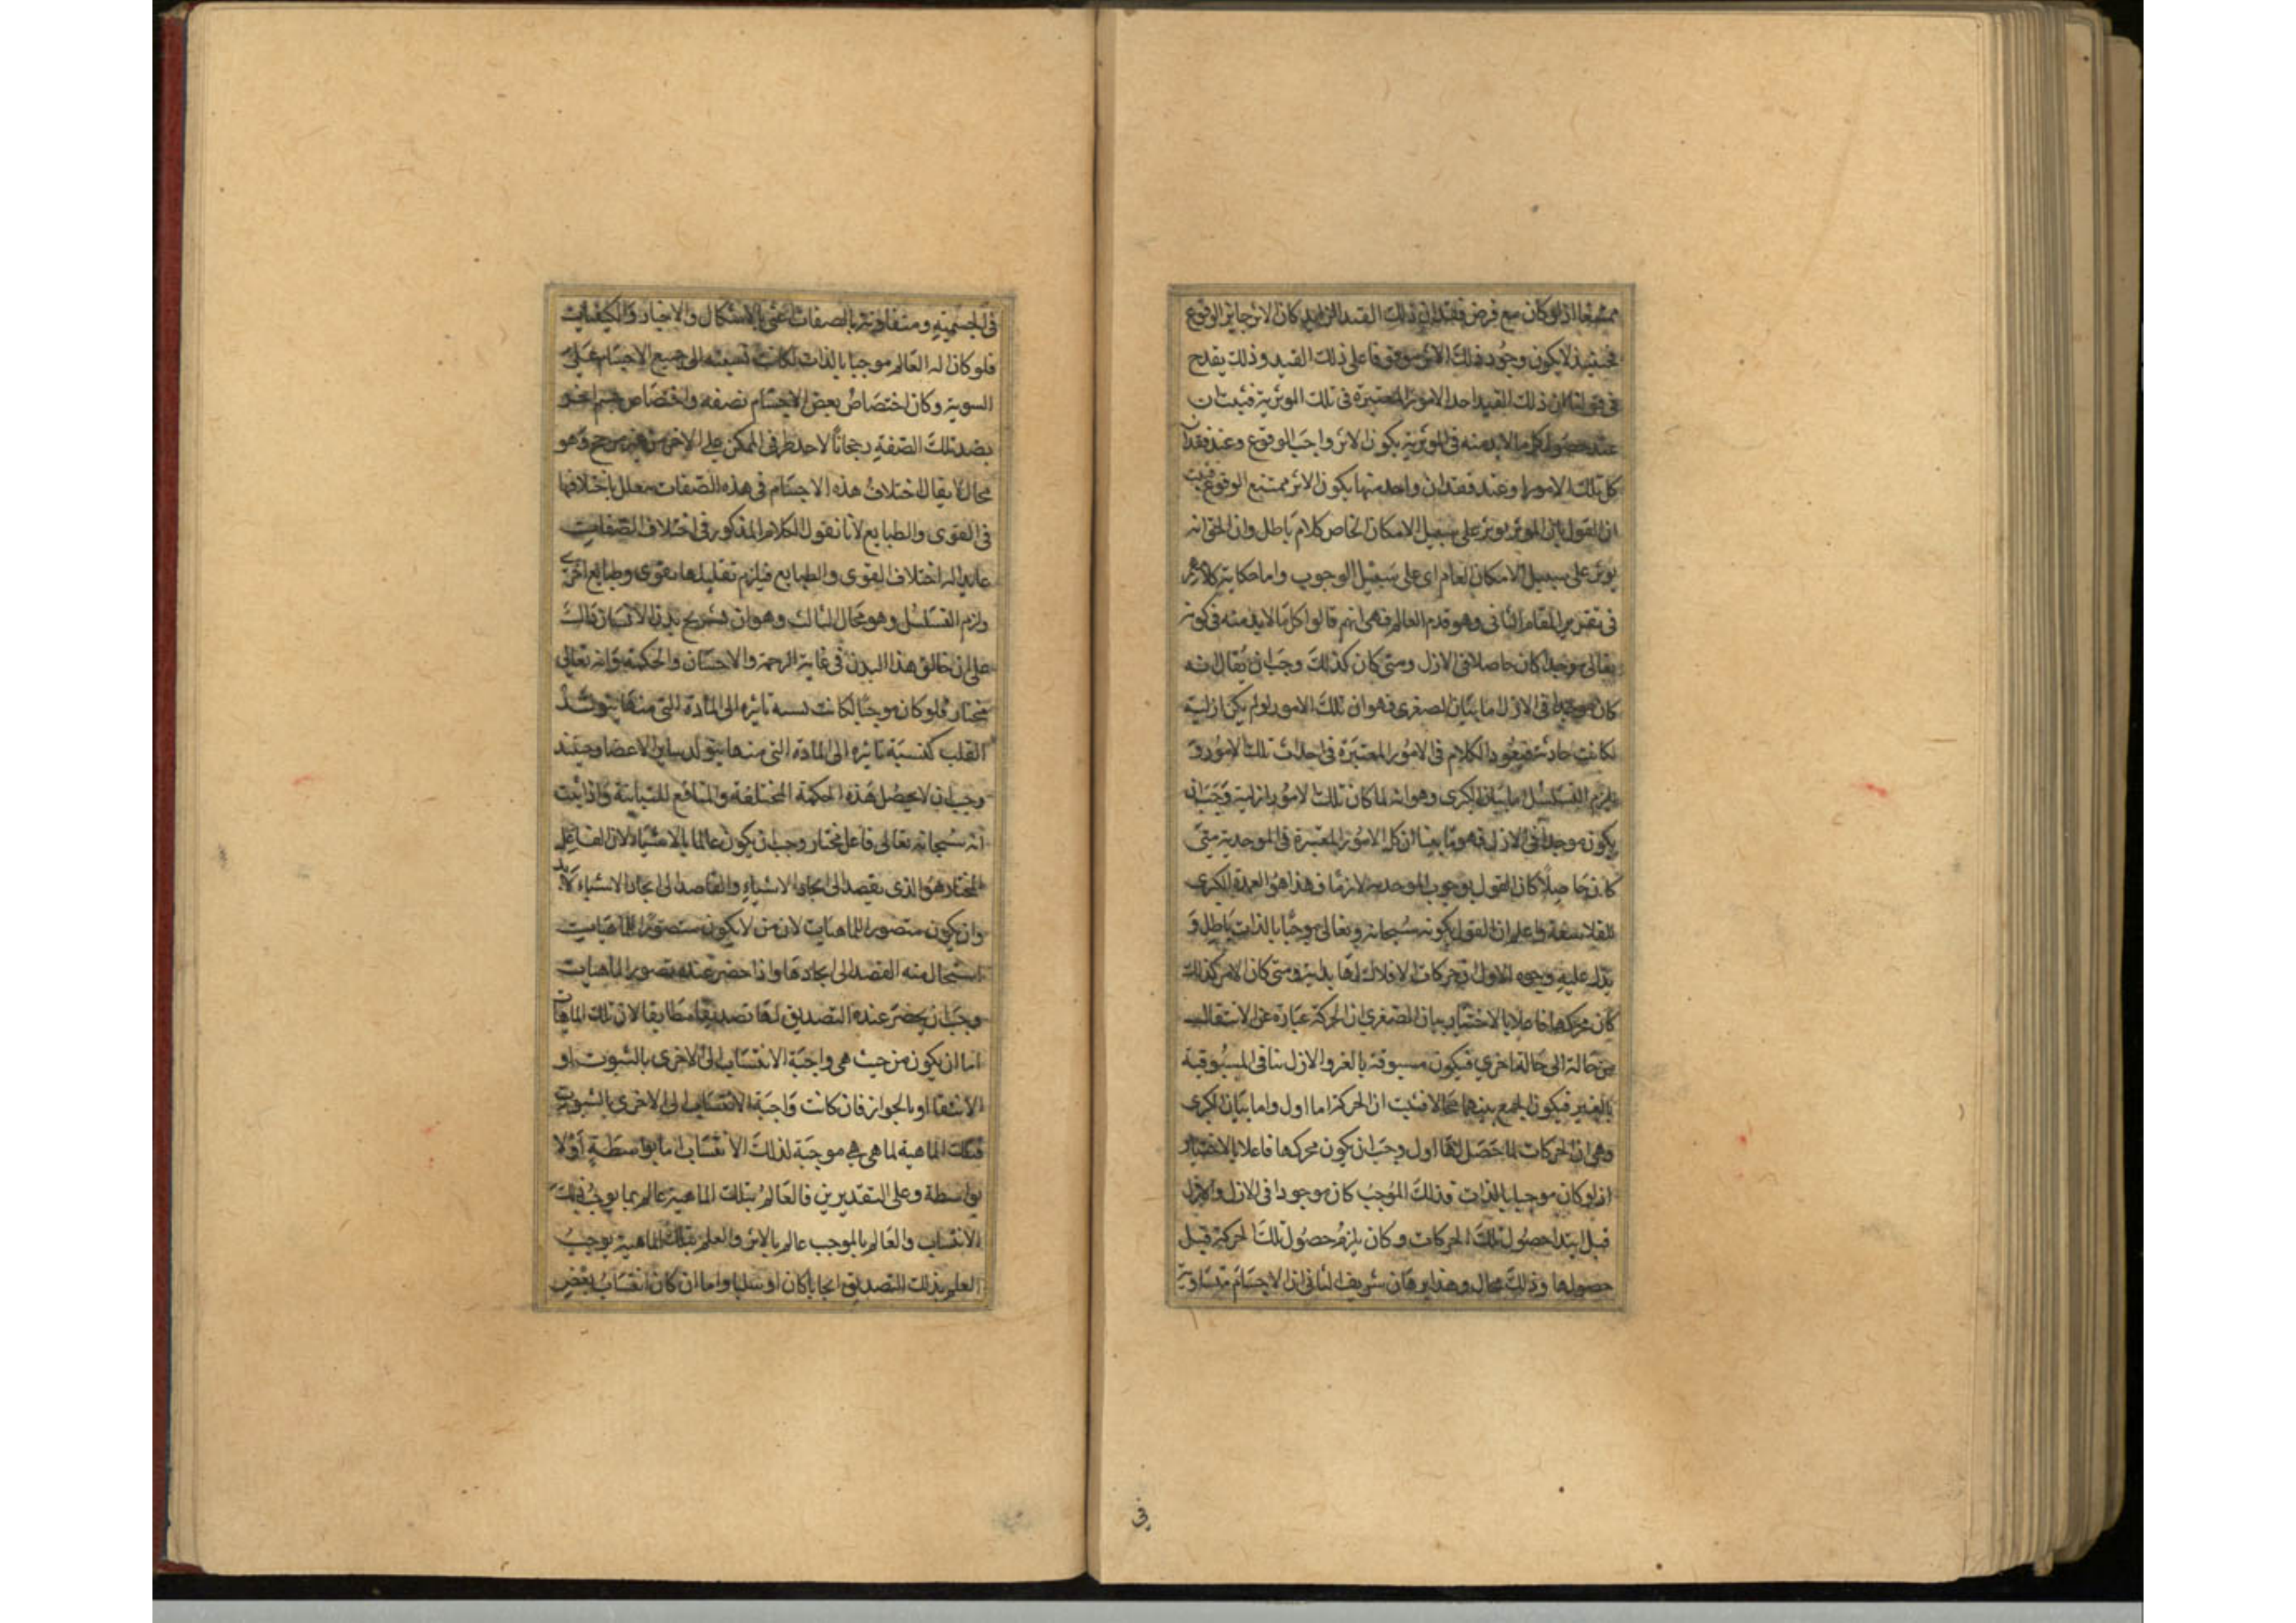 ممتنعا اذ لو كان مع فرض فقدان ذلك القيد الزايد كان الاثر جايز الوقوع
فحينئذ لا يكون وجود ذلك الاثر موقوفا على ذلك القيد وذلك يقدح
فى قولنا ان ذلك القيد احد الامور المعتبرة فى تلك الموثرية فثبت ان
عند حصول كل ما لا بد منه فى الموثرية يكون الاثر واجب الوقوع وعند فقدان
كل تلك الامور او عند فقدان واحد منها يكون الاثر ممتنع الوقوع فثبت
ان القول بان الموثر يوثر على سبيل الامكان الخاص كلام باطل وان الحق انه
يوثر على سبيل الامكان العام اى على سبيل الوجوب واما حكاية كلامهم
فى تقرير المقام الثانى وهو قدم العالم فهى انهم قالوا كل ما لا بد منه فى كونه
تعالى موجدا كان حاصلا فى الازل ومتى كان كذلك وجب ان يقال انه
كان موجدا فى الازل اما بيان الصغرى فهو ان تلك الامور لو لم يكن ازلية
لكانت حادثة فيعود الكلام فى الامور المعتبرة فى احداث تلك الامور و
يلزم التسلسل اما بيان الكبرى وهو انه لما كان تلك الامور ازلية وجب ان
يكون موجدا فى الازل فهو ما بينا ان كل الامور المعتبرة فى الموجدية متى
كان حاصلا كان القول بوجوب الموجدية لازما فهذا هو العمدة الكبرى
للفلاسفة واعلم ان القول بكونه سبحانه وتعالى موجبا بالذات باطل و
يدل عليه وجوه الاول ان حركات الافلاك لها بداية ومتى كان الامر كذلك
كان محركها فاعلا بالاختيار بيان الصغرى ان الحركة عبارة عن الانتقال
من حالة الى حالة اخرى فيكون مسبوقة بالغير والازل ينافى المسبوقية
بالغير فيكون الجمع بينهما محالا فثبت ان الحركة لها اول واما بيان الكبرى
وهى ان الحركات لما حصل لها اول وجب ان يكون محركها فاعلا بالاختيار
اذ لو كان موجبا بالذات فذلك الموجب كان موجودا فى الازل والازل
قبل ابتدا حصول تلك الحركات وكان يلزم حصول تلك الحركة قبل
حصولها وذلك محال وهذا برهان شريف الثانى ان الاجسام متساوية
فى
فى الجسمية ومتفاوتة بالصفات اعنى بالاشكال والاحياز والكيفيات
فلو كان اله العالم موجبا بالذات لكانت نسبته الى جميع الاجسام على
السوية وكان اختصاص بعض الاجسام بصفة واختصاص جسم اخر
بضد تلك الصفة رجحانا لاحد طرفى الممكن على الاخر من غير مرجح وهو
محال لا يقال اختلاف هذه الاجسام فى هذه الصفات معلل باختلافها
فى القوى والطبايع لانا نقول الكلام المذكور فى اختلاف الصفات
عايد الى اختلاف القوى والطبايع فيلزم تعليلها بقوى وطبايع اخرى
ولزم التسلسل وهو محال الثالث وهو ان تشريح بدن الانسان دالة
على ان خالق هذا البدن فى غاية الرحمة والاحسان والحكمة وانه تعالى
مختار فلو كان موجبا لكانت نسبة تاثيره الى المادة التى منها يتولد
القلب كنسبة تاثيره الى المادة التى منها يتولد ساير الاعضا وحينئذ
وجب ان لا يحصل هذه الحكمة المختلفة والمنافع المتباينة واذا ثبت
انه سبحانه تعالى فاعل مختار وجب ان يكون عالما بالاشياء لان الفاعل
المختار هو الذى يقصد الى ايجاد الاشياء والقاصد الى ايجاد الاشياء لا بد
وان يكون متصورا للماهيات لان من لا يكون متصورا للماهيات
استحال منه القصد الى ايجادها واذا حضر عنده تصور الماهيات
وجب ان يحضر عنده التصديق لها تصديقا مطابقا لان تلك الماهيات
اما ان يكون من حيث هى واجبة الانتساب الى الاخرى بالثبوت او
الانتفا او بالجواز فان كانت واجبة الانتساب الى الاخرى بالثبوت
فتلك الماهية لما هى هى موجبة لذلك الانتساب اما بواسطة او لا
بواسطة وعلى التقديرين فالعالم بتلك الماهية عالم بما يوجب ذلك
الانتساب والعالم بالموجب عالم بالاثر والعلم بتلك الماهية يوجب
العلم بذلك التصديق ايجابا كان او سلبا واما ان كان انتساب بعض